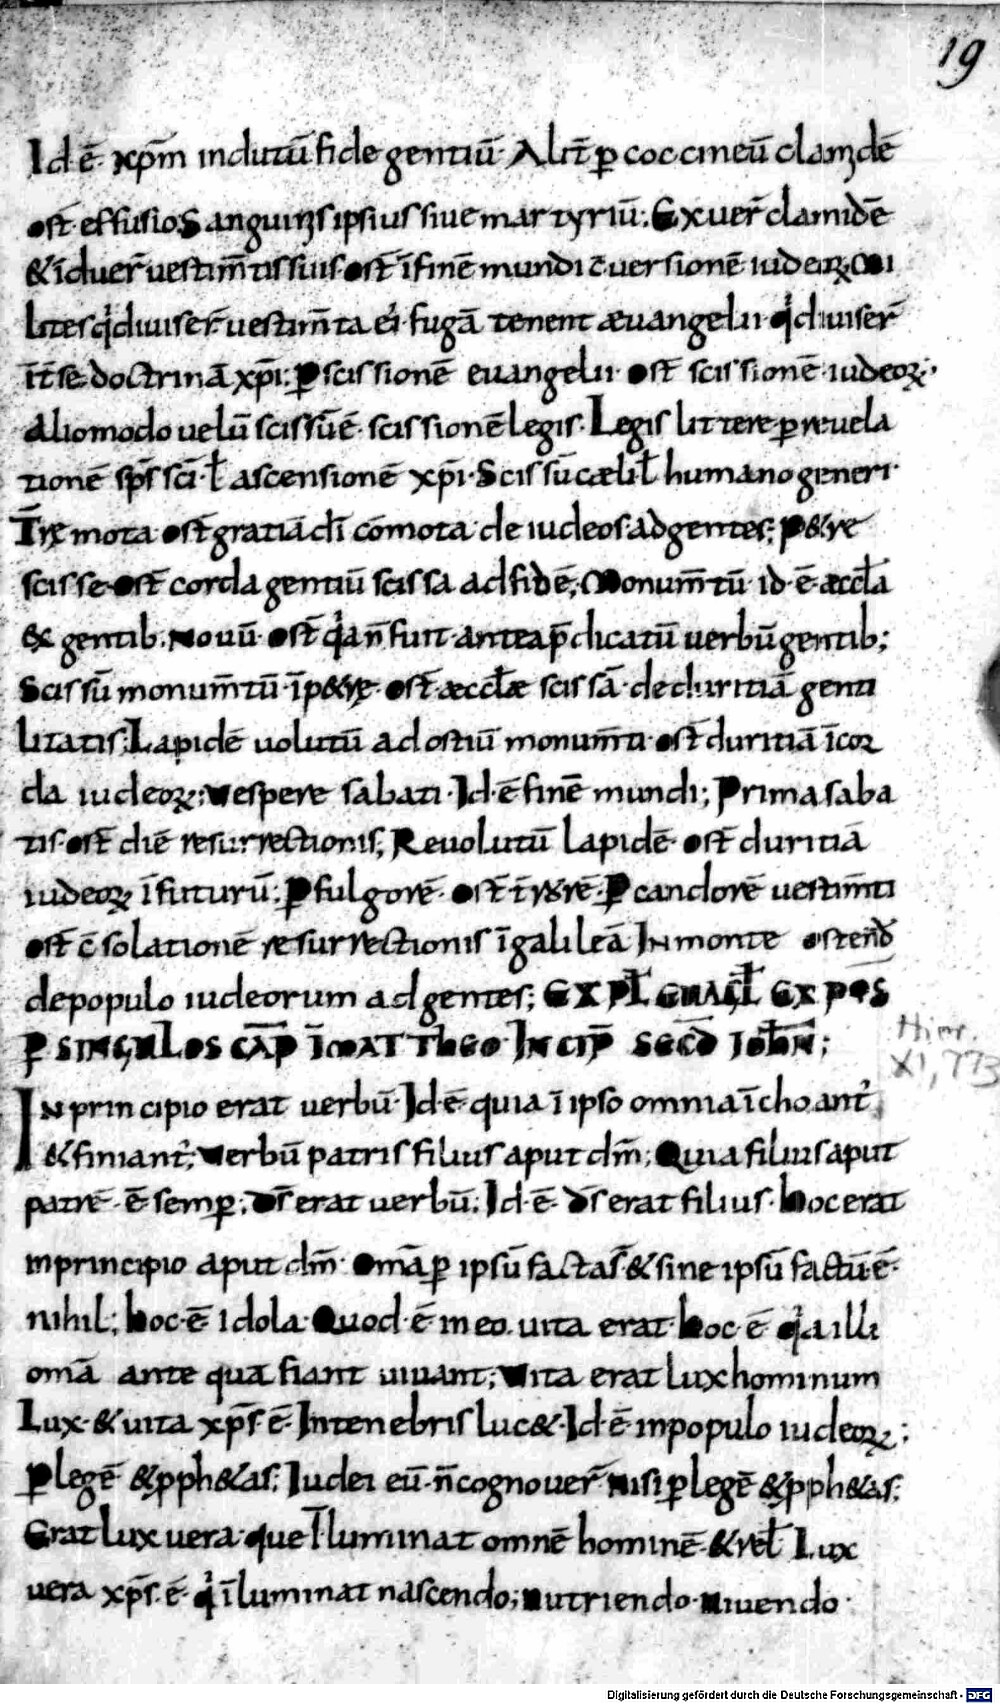 19
Id·ē· xp̄m indutū fide gentiū· Alit̄ ꝑ coccineū clamidē
ost̄· effusio Sanguinis ipsius siue martyriū; Exuer̄ clamidē
& īduer̄ uestim̄tis suis ost̄ ī finē mundi c̄uersionē iudeoꝝ Mi
lites q̇ diuiser̄ uestim̄ta ei᾽ fugā tenent æuangelii· q̇ diuiser̄
īt̄ se doctrinā xp̄i; ꝑ scissionē euangelii· ost̄ scissionē iudeoꝝ;
Alio modo uelū scissū ē· scissionē legis· Legis littere ꝑ reuela
tionē sp̄s sc̄i· ł ascensionē xp̄i· Scissū cæli ł humano generi·
T̄rę mota ost̄ gratiā dī cōmota de iudeos ad gentes; P&re
scisse ost̄ corda gentiū scissa ad fidē; Monum̄tū id·ē· æccła
ex gentib; Nouū ost̄ q̇a n̄ fuit antea p̄dicatū uerbū gentib;
Scissū monum̄tū ī p&rę· ost̄ æccłæ scissā· de duritiā genti
litatis; Lapidē uolutū ad ostiū monum̄ti ost̄ duritiā ī cor
da iudeoꝝ; Vespere sabati· Id·ē finē mundi; Prima saba
tis· ost̄ diē resurrectionis; Reuolutū lapidē ost̄ duritiā
iudeoꝝ ī futurū; ꝑ fulgorē· ost̄ ꝑ candorē uestim̄ti
ost̄ c̄solationē resurrectionis ī galileā In monte ostend̄
de populo iudeorum ad gentes; EXPŁ EUAGŁ EXPOS
ꝑ SINGULOS CAP̄ Ī MATTHEO· INCIP̄ SECD̄ IOHN̄;
Hier.
XI, 773
In principio erat uerbū· Id·ē· quia ī ipso omnia īchoant᾽
& finiant᾽; Verbū patris filius aput dm̄; Quia filius aput
patrē· ē semꝑ; Ds̄ erat uerbū; Id·ē· Ds̄ erat filius· Hoc erat
in principio aput dm̄· Omā ꝑ ipsū facta s̄ & sine ipsū factū ē·
nihil; Hoc·ē· idola· Quod·ē· in eo uita erat· Hoc·ē· q̇a illi
omā ante quā fiant uiuant; Vita erat lux hominum
Lux· & uita xp̄s·ē· In tenebris luc&· Id·ē· in populo iudeoꝝ;
ꝑ legē & pph&as; Iudei eū n̄ cognouer̄ nisi ꝑ legē & pph&as;
Erat lux uera· que Illuminat omnē hominē· & reł Lux
uera xp̄s·ē· q̇ īluminat nascendo; nutriendo· uiuendo·
Digitalisierung gefördert durch die Deutsche Forschungsgemeinschaft - DFG